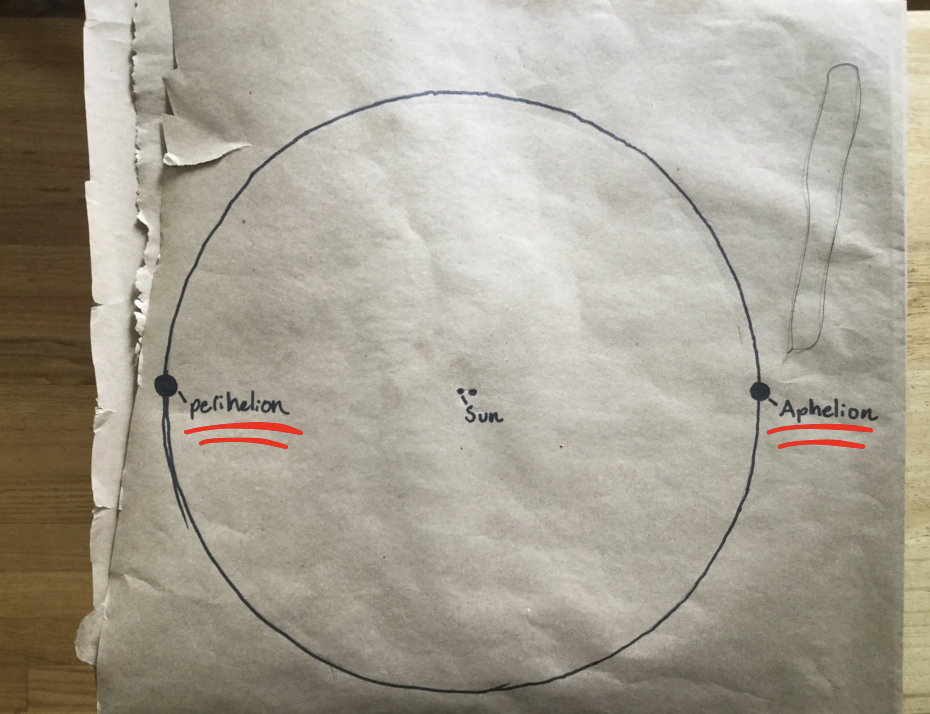 perihelion
Sun
Aphelion